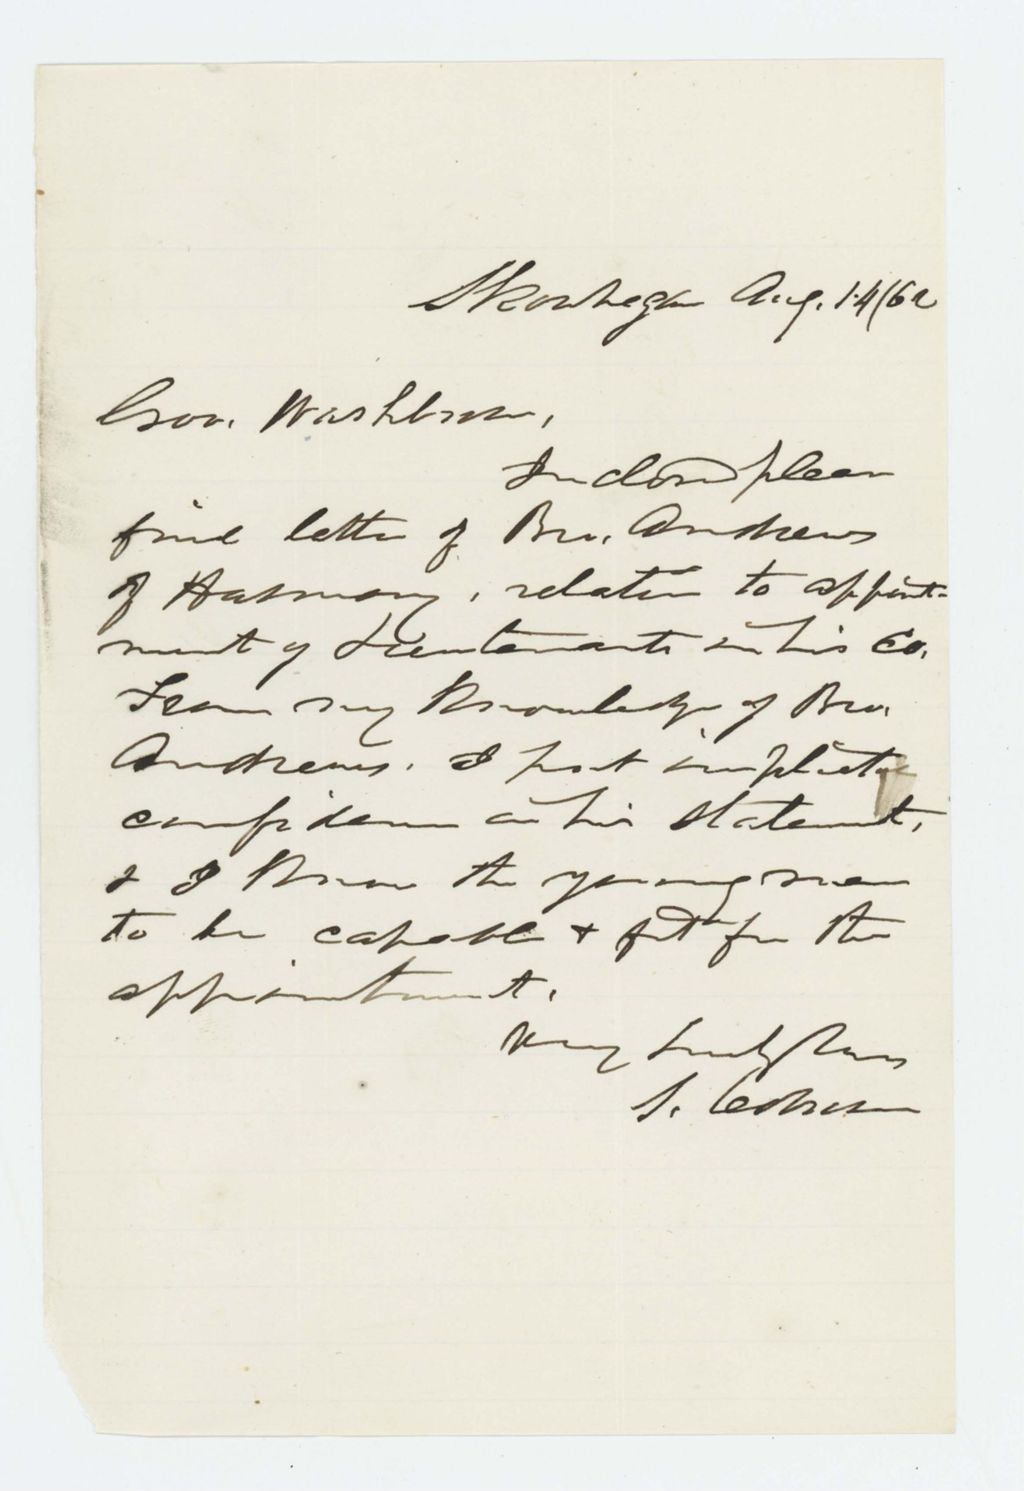 Skowhegan Aug. 14/62
Gov. Washburn,
Inclosed please
find letter of Bro. Andrews
of Harmony, relative to appoint-
ment of Lieutenants in his Co.
From my knowledge of Bro.
Andrews. I put implicit
confidence in his statement,
& I know the young men
to be capable & fit for the
appointment.
Very Truly Yours
S. Coburn